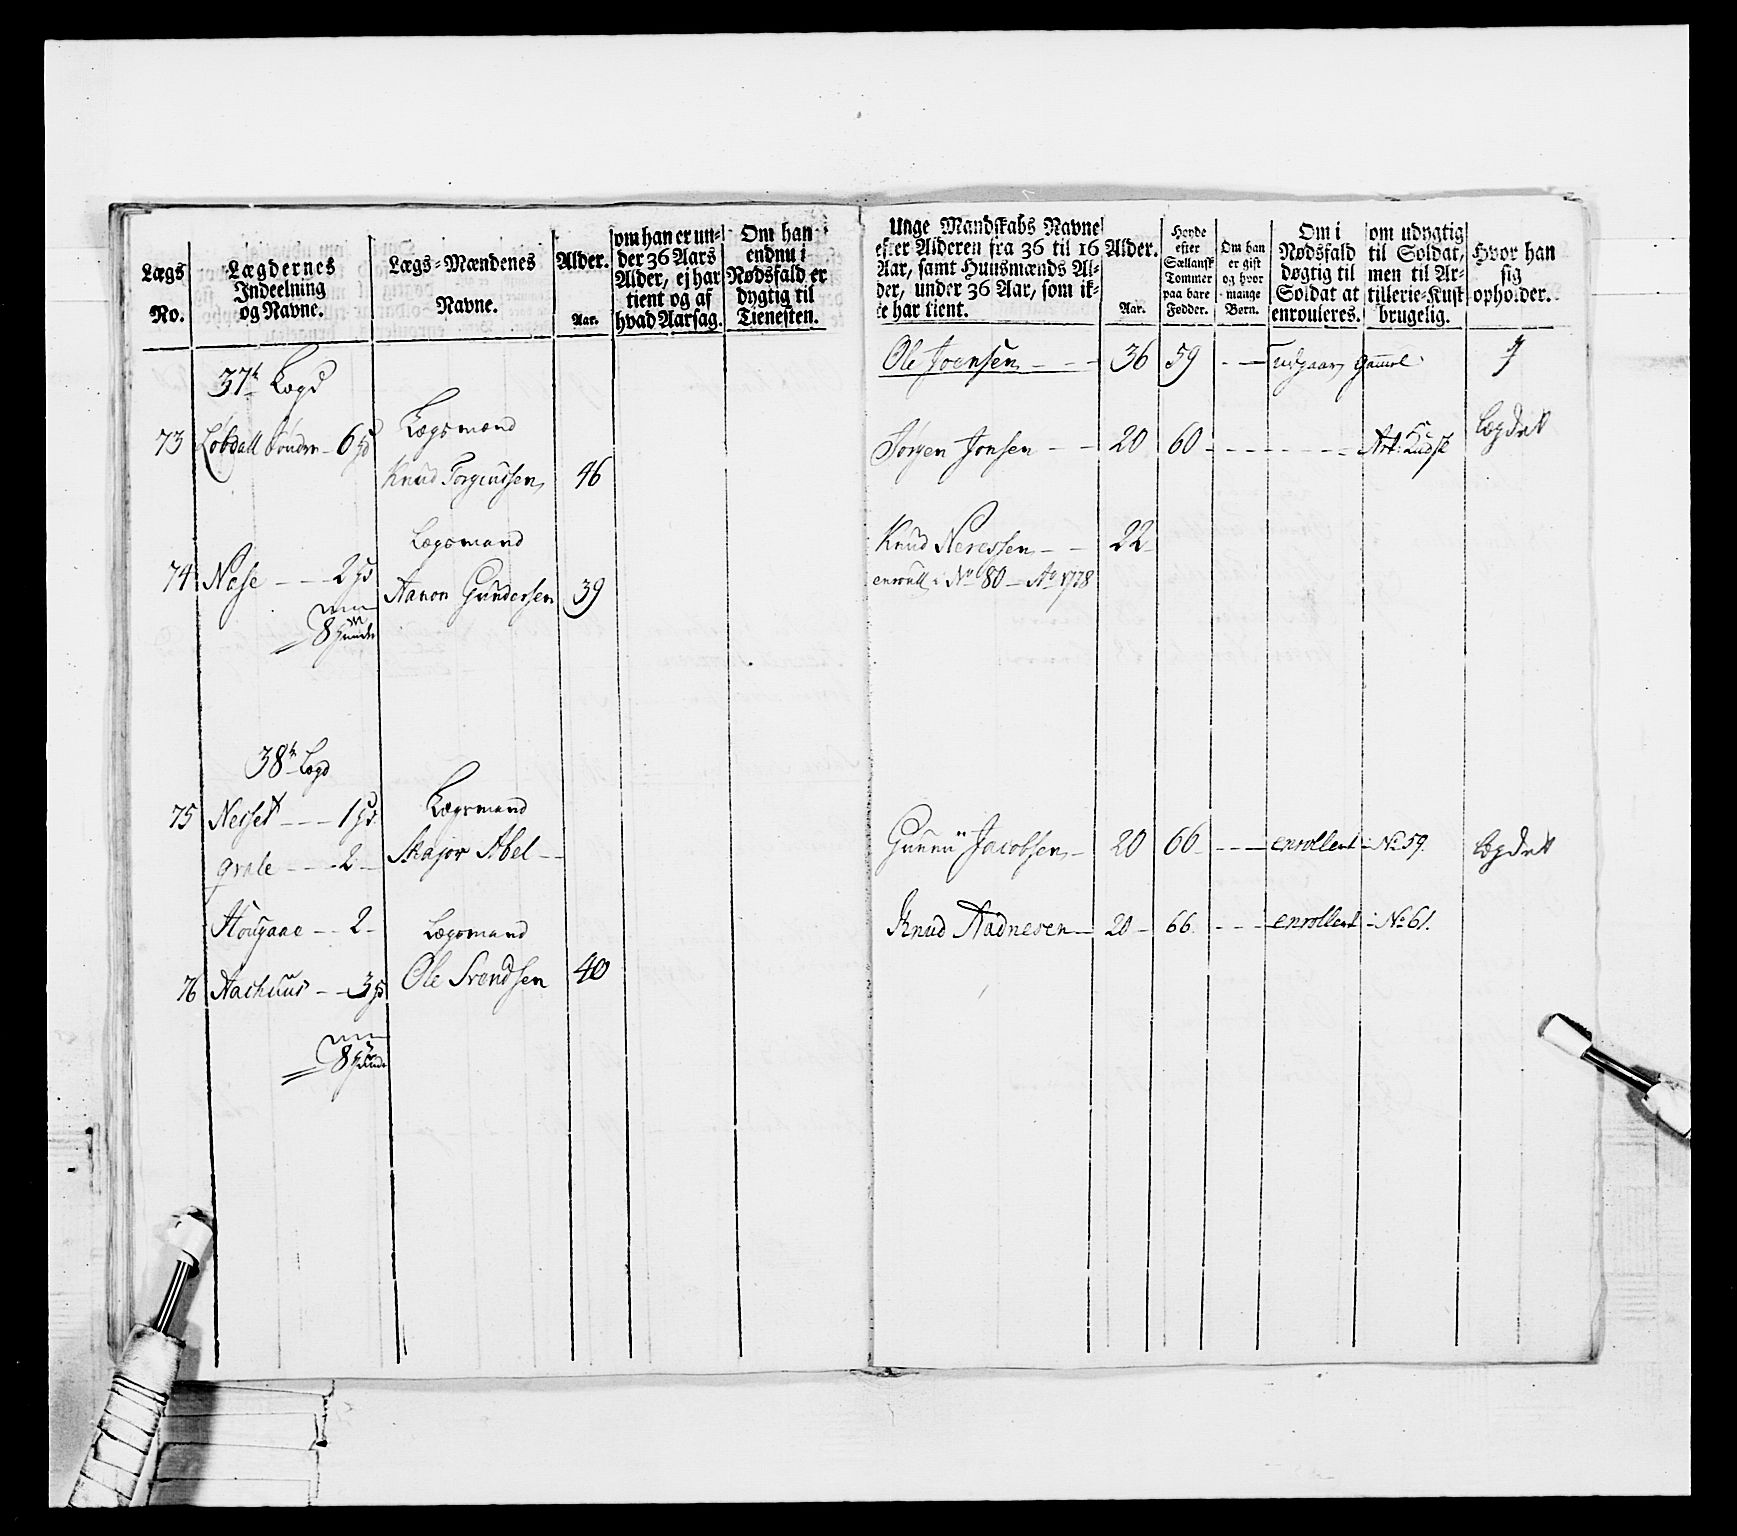 Lægs
No.
Lægdernes
Indeelning
og Navne.
Lægs-Mændenes
Navne.
Alder.
Aar.
om han er un-
der 36 Aars
Alder, ej har
tient og af
hvad Aarsag.
Om han
endnu i
Nødsfald er
dygtig til
Tienesten.
37te Lægd
73 Løbdall Sönder - 6
Lægsmand
Knud Torgiusen 46
74 Nase - - - 2
Lægsmand
Aanon Gundersen 39
8 Hunde
38te Lægd
75 Nesset - - - 1
Lægsmand
grale - - - 2 -
Major Abel - -
Hougaae - - 2 -
Lægsmand
76 Aashuus - - 3
Ole Svendsen 40
8 Hunde
Unge Mandskabs Navne
efter Alderen fra 36 til 16
Aar, samt Huusmænds Al-
der, under 36 Aar, som ik-
ke har tient.
Alder.
Aar.
Høyde
efter
Sællansk
Tommer
paa bare
Fødder.
Om han
er gift
og hvor
mange
Børn.
Om i
Nødsfald
døgtig til
Soldat at
enrouleres.
om udygtig
til Soldat,
men til Ar-
tillerie-Kusk
brugelig.
Hvor han
sig
opholder.
Ole Joensen - - - 36 59 - - udgaar gammel
Jørgen Jonsen - - 20 60 - - - - - - Art: Kudsk Lægdet
Knud Neressen - - 22
enroull i No 80 - Ao 1778
Gunnü Jacobsen - 20 66 - - - enrollert - No 59. Lægdet
Knud Aadnesen - 20 - 66 - - - enrollert - No 61.